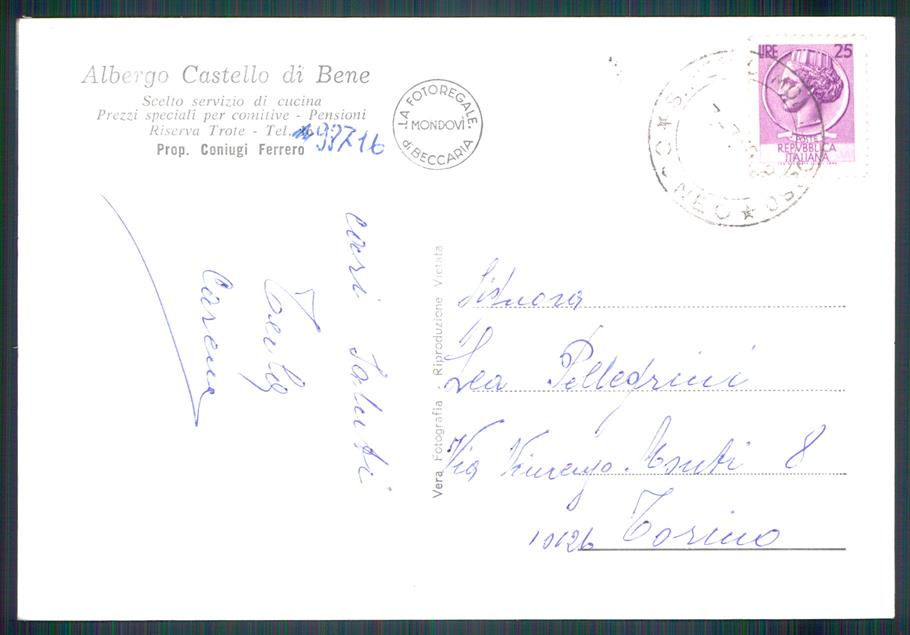 Albergo Castello di Bene
Scelto servizio di cucina
Prezzi speciali per comitive - Pensioni
Riserva Trote - Tel. 93716
Prop. Coniugi Ferrero
LA FOTOREGALE
MONDOVÌ
di BECCARIA
LIRE 25
POSTE
REPVBBLICA
ITALIANA
cari saluti
Carena
Vera Fotografia - Riproduzione Vietata
Signora
Lea Pellegrini
Via Vincenzo Monti 8
10126 Torino